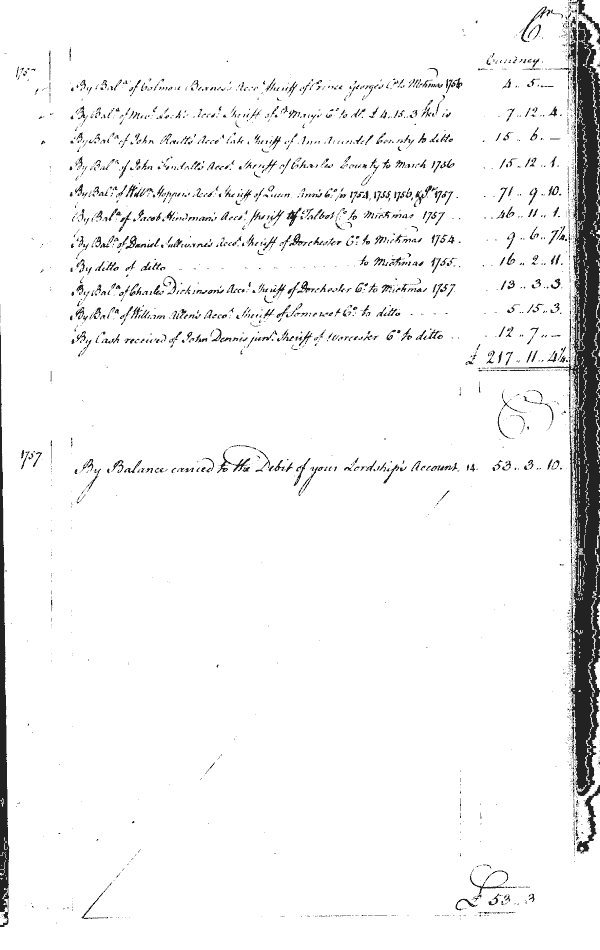 Cr
Currency
1757
By Bal.ce of Colmore Beanes's Acco.t Sheriff of Prince George's C.o to Mickmas 1756 4 .. 5 .. —
By Bal.ce of Acco.t Sheriff of S.t Mary's C.o to d.o £ 4..15..3 is 7 .. 12 .. 4.
By Bal.ce of John Raitt's Acco.t late Sheriff of Ann Arundel County to ditto 15 .. 6 .. —
By Bal.ce of John Tyndall's Acco.t Sheriff of Charles County to March 1756 15 .. 12 .. 1.
By Bal.ce of Will.m Hopper's Acco.t Sheriff of Queen Ann's C.o for 1754, 1755, 1756, & 1757 .. 71 .. 9 .. 10.
By Bal.ce of Jacob Hindman's Acco.t Sheriff of Talbot C.o to Mickmas 1757 .. 46 .. 11 .. 1.
By Bal.ce of Daniel Sullivane's Acco.t Sheriff of Dorchester C.o to Mickmas 1754. 9 .. 6 .. 7¼.
By ditto of ditto to Mickmas 1755 .. 16 .. 2 .. 11.
By Bal.ce of Charles Dickinson's Acco.t Sheriff of Dorchester C.o to Mickmas 1757 13 .. 3 .. 3.
By Bal.ce of William Allen's Acco.t Sheriff of Somerset C.o to ditto 5 .. 15 .. 3.
By Cash received of John Dennis jun.r Sheriff of Worcester C.o to ditto .. 12 .. 7 .. —
£ 217 .. 11 .. 4¼.
1757 By Balance carried to the Debit of your Lordship's Account. 14. 53 .. 3 .. 10.
£ 53 .. 3